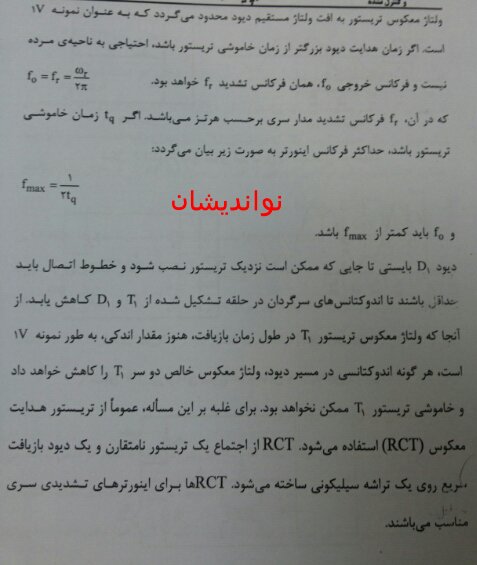 و کنترل شده
ولتاژ معکوس تریستور به افت ولتاژ مستقیم دیود محدود می‌گردد که به عنوان نمونه ۱V
است. اگر زمان هدایت دیود بزرگتر از زمان خاموشی تریستور باشد، احتیاجی به ناحیه‌ی مرده
نیست و فرکانس خروجی f₀، همان فرکانس تشدید fᵣ خواهد بود. f₀ = fᵣ = ωᵣ/۲π
که در آن، fᵣ فرکانس تشدید مدار سری برحسب هرتز می‌باشد. اگر t_q زمان خاموشی
تریستور باشد، حداکثر فرکانس اینورتر به صورت زیر بیان می‌گردد:
f_max = ۱/۲t_q
نواندیشان
و f₀ باید کمتر از f_max باشد.
دیود D₁ بایستی تا جایی که ممکن است نزدیک تریستور نصب شود و خطوط اتصال باید
حداقل باشند تا اندوکتانس‌های سرگردان در حلقه تشکیل شده از T₁ و D₁ کاهش یابد. از
آنجا که ولتاژ معکوس تریستور T₁ در طول زمان بازیافت، هنوز مقدار اندکی، به طور نمونه ۱V
است، هر گونه اندوکتانسی در مسیر دیود، ولتاژ معکوس خالص دو سر T₁ را کاهش خواهد داد
و خاموشی تریستور T₁ ممکن نخواهد بود. برای غلبه بر این مسأله، عموماً از تریستور هدایت
معکوس (RCT) استفاده می‌شود. RCT از اجتماع یک تریستور نامتقارن و یک دیود بازیافت
سریع روی یک تراشه سیلیکونی ساخته می‌شود. RCTها برای اینورترهای تشدیدی سری
مناسب می‌باشند.